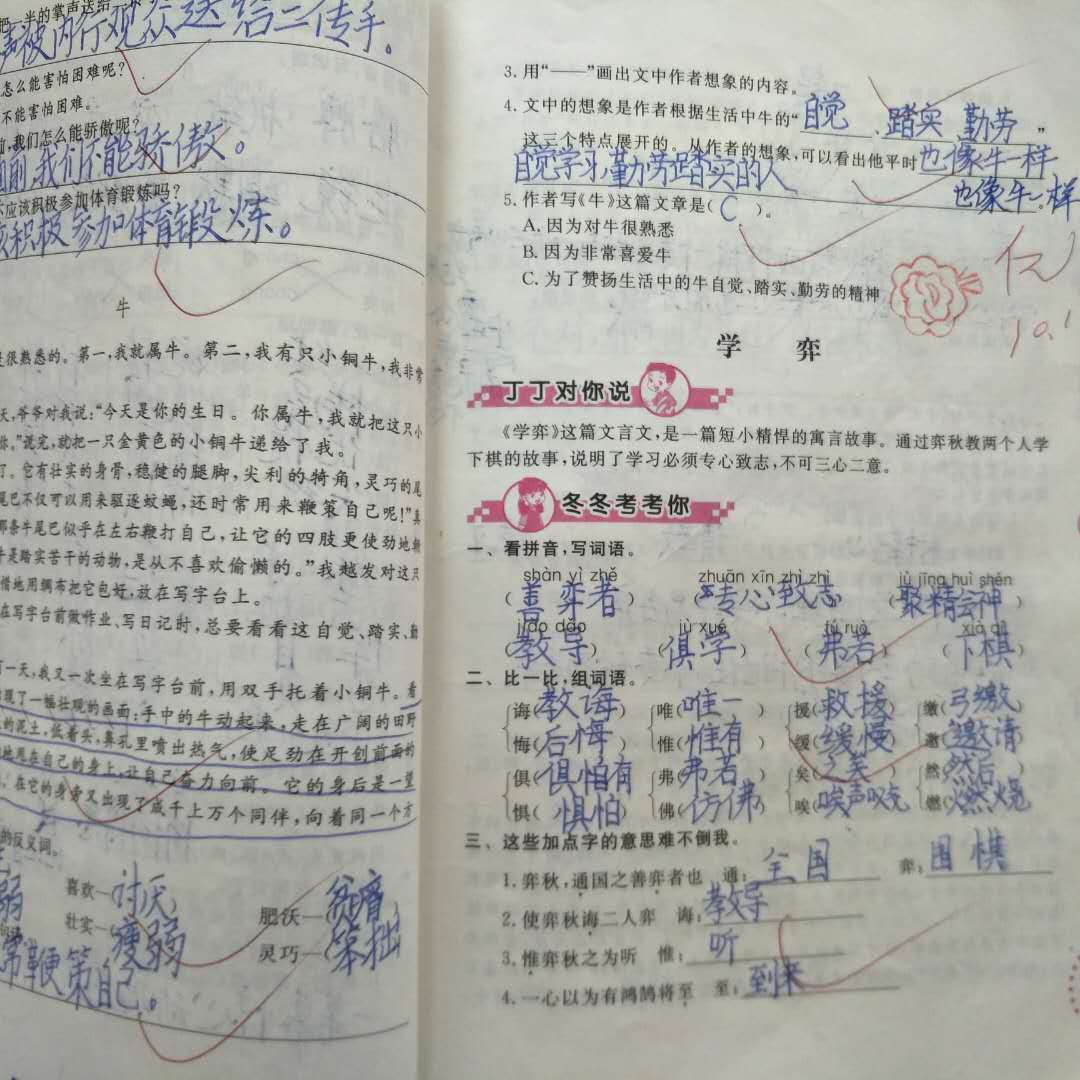 把一半的掌声送给
声被内行观众送给二传手。
怎么能害怕困难呢？
不能害怕困难。
前，我们怎么能骄傲呢？
面前，我们不能骄傲。
不应该积极参加体育锻炼吗？
该积极参加体育锻炼。
牛
是很熟悉的。第一，我就属牛。第二，我有只小铜牛，我非常
天，爷爷对我说：“今天是你的生日。你属牛，我就把这只小
你。”说完，就把一只金黄色的小铜牛递给了我。
了。它有壮实的身骨，稳健的腿脚，尖利的犄角，灵巧的尾
尾巴不仅可以用来驱逐蚊蝇，还时常用来鞭策自己呢！”真
那条牛尾巴似乎在左右鞭打自己，让它的四肢更使劲地朝
牛是踏实苦干的动物，是从不喜欢偷懒的。”我越发对这只
惜地用绸布把它包好，放在写字台上。
在写字台前做作业、写日记时，总要看看这自觉、踏实、勤
有一天，我又一次坐在写字台前，用双手托着小铜牛。看
出现了一幅壮观的画面：手中的牛动起来，走在广阔的田野
的泥土，低着头，鼻孔里喷出热气，使足劲在开创前面的
地甩在自己的身上，让自己奋力向前。它的身后是一望
，在它的身旁又出现了成千上万个同伴，向着同一个方
的反义词。
弱 喜欢—(讨厌) 肥沃—(贫瘠)
壮实—(瘦弱) 灵巧—(笨拙)
常鞭策自己。
3. 用“——”画出文中作者想象的内容。
4. 文中的想象是作者根据生活中牛的“自觉、踏实 勤劳”
这三个特点展开的。从作者的想象，可以看出他平时也像牛一样
自觉学习，勤劳踏实的人 也像牛一样。
5. 作者写《牛》这篇文章是( C )。
A. 因为对牛很熟悉
B. 因为非常喜爱牛
C. 为了赞扬生活中的牛自觉、踏实、勤劳的精神
优
学 弈
丁丁对你说
《学弈》这篇文言文，是一篇短小精悍的寓言故事。通过弈秋教两个人学
下棋的故事，说明了学习必须专心致志，不可三心二意。
冬冬考考你
一、看拼音，写词语。
shàn yì zhě zhuān xīn zhì zhì jù jīng huì shén
(善弈者) (专心致志) (聚精会神)
jiào dǎo jù xué fú ruò xià qí
(教导) (俱学) (弗若) (下棋)
二、比一比，组词语。
诲(教诲) 唯(唯一) 援(救援) 缴(弓缴)
悔(后悔) 惟(惟有) 缓(缓慢) 邀(邀请)
俱(俱怕有) 弗(弗若) 矣( ) 然(然后)
惧(惧怕) 佛(仿佛) 唉(唉声叹气) 燃(燃烧)
三、这些加点字的意思难不倒我。
1. 弈秋，通国之善弈者也 通：全国 弈：围棋
2. 使弈秋诲二人弈 诲：教导
3. 惟弈秋之为听 惟：听
4. 一心以为有鸿鹄将至 至：到来